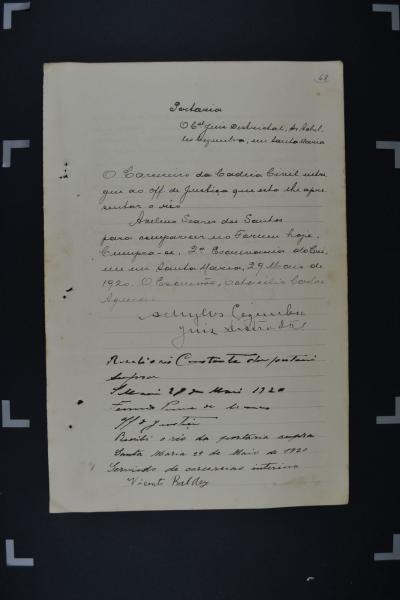 68
Portaria
O Cel Juiz Districtal, Dr Achyl-
les Cezimbra, em Santa Maria
O Carcereiro da Cadeia Civil entre
gue ao off. de Justiça que esta lhe apre
sentar o réo
Avelino Soares dos Santos
para comparecer no Forum hoje.
Cumpra-se. 2º Escrivania do Cri-
me em Santa Maria, 29 Maio de
1920. O Escrivão, Octacilio Carlos
Achylles Cezimbra
Juiz Districtal
Recebi o réo Constante da portaria
supra
S. Maria 29 de Maio 1920
de
Off de Justiça
Recibi o réo da portaria supra
Santa Maria 29 de Maio de 1920
Servindo de carcereiro interino
Vicente